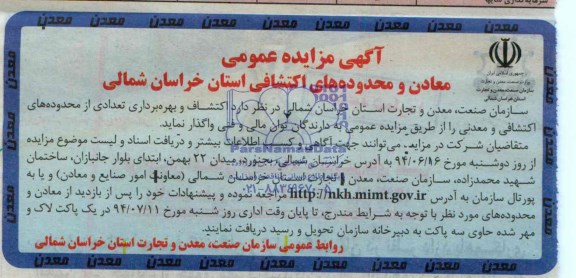 معدن معدن معدن معدن معدن معدن معدن معدن
جمهوری اسلامی ایران
وزارت صنعت، معدن و تجارت
سازمان صنعت، معدن و تجارت
استان خراسان شمالی
آگهی مزایده عمومی
معادن و محدوده‌های اکتشافی استان خراسان شمالی
سازمان صنعت، معدن و تجارت استان خراسان شمالی در نظر دارد اکتشاف و بهره‌برداری تعدادی از محدوده‌های
اکتشافی و معدنی را از طریق مزایده عمومی به دارندگان توان مالی و فنی واگذار نماید.
متقاضیان شرکت در مزایده می‌توانند جهت آگاهی و کسب اطلاعات بیشتر و دریافت اسناد و لیست موضوع مزایده
از روز دوشنبه مورخ ۹۴/۰۶/۱۶ به آدرس خراسان شمالی، بجنورد، میدان ۲۲ بهمن، ابتدای بلوار جانبازان، ساختمان
شهید محمدزاده، سازمان صنعت، معدن و تجارت استان خراسان شمالی (معاونت امور صنایع و معادن) و یا به
پورتال سازمان به آدرس http://nkh.mimt.gov.ir مراجعه نموده و پیشنهادات خود را پس از بازدید از معادن و
محدوده‌های مورد نظر با توجه به شرایط مندرج، تا پایان وقت اداری روز شنبه مورخ ۹۴/۰۷/۱۱ در یک پاکت لاک و
مهر شده حاوی سه پاکت به دبیرخانه سازمان تحویل و رسید دریافت نمایند.
روابط عمومی سازمان صنعت، معدن و تجارت استان خراسان شمالی
ParsNamadData
۰۲۱-۸۸۳۴۹۶۷۰-۵
معدن معدن معدن معدن معدن معدن معدن معدن